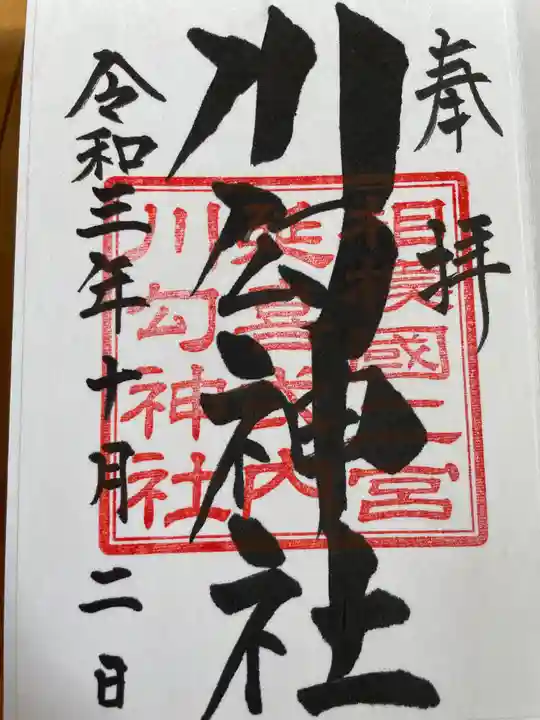 奉拝
川勾神社
令和三年十月二日
相模國二宮
延喜式内
川勾神社